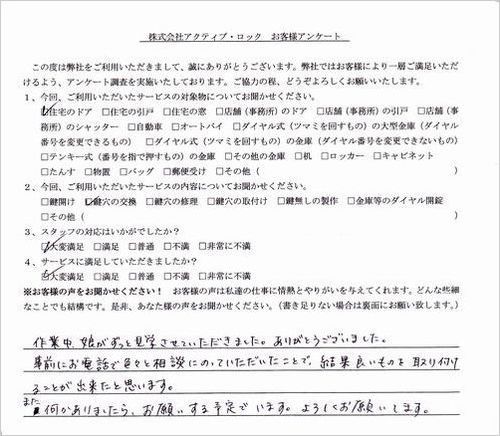 株式会社アクティブ・ロック　お客様アンケート
この度は弊社をご利用いただきまして、誠にありがとうございます。弊社ではお客様により一層ご満足いただ
けるよう、アンケート調査を実施いたしております。ご協力の程、どうぞよろしくお願いいたします。
1、今回、ご利用いただいたサービスの対象物についてお聞かせください。
☑住宅のドア　□住宅の引戸　□住宅の窓　□店舗（事務所）のドア　□店舗（事務所）の引戸　□店舗（事
務所）のシャッター　□自動車　□オートバイ　□ダイヤル式（ツマミを回すもの）の大型金庫（ダイヤル
番号を変更できるもの）　□ダイヤル式（ツマミを回すもの）の金庫（ダイヤル番号を変更できないもの）
□テンキー式（番号を指で押すもの）の金庫　□その他の金庫　□机　□ロッカー　□キャビネット
□たんす　□物置　□バッグ　□郵便受け　□その他（　　　）
2、今回、ご利用いただいたサービスの内容についてお聞かせください。
□鍵開け　☑鍵穴の交換　□鍵穴の修理　□鍵穴の取付け　□鍵無しの製作　□金庫等のダイヤル開錠
□その他（　　　）
3、スタッフの対応はいかがでしたか？
☑大変満足　□満足　□普通　□不満　□非常に不満
4、サービスに満足していただきましたか？
☑大変満足　□満足　□普通　□不満　□非常に不満
※お客様の声をお聞かせください！　お客様の声は私達の仕事に情熱とやりがいを与えてくれます。どんな些細
なことでも結構です。是非、あなた様の声をお聞かせください。（書き足りない場合は裏面にお願い致します。）
作業中、娘がずっと見学させていただきました。ありがとうございました。
事前にお電話で色々と相談にのっていただいたことで、結果良いものを取り付け
ることが出来たと思います。
また何かありましたら、お願いする予定でいます。よろしくお願いします。